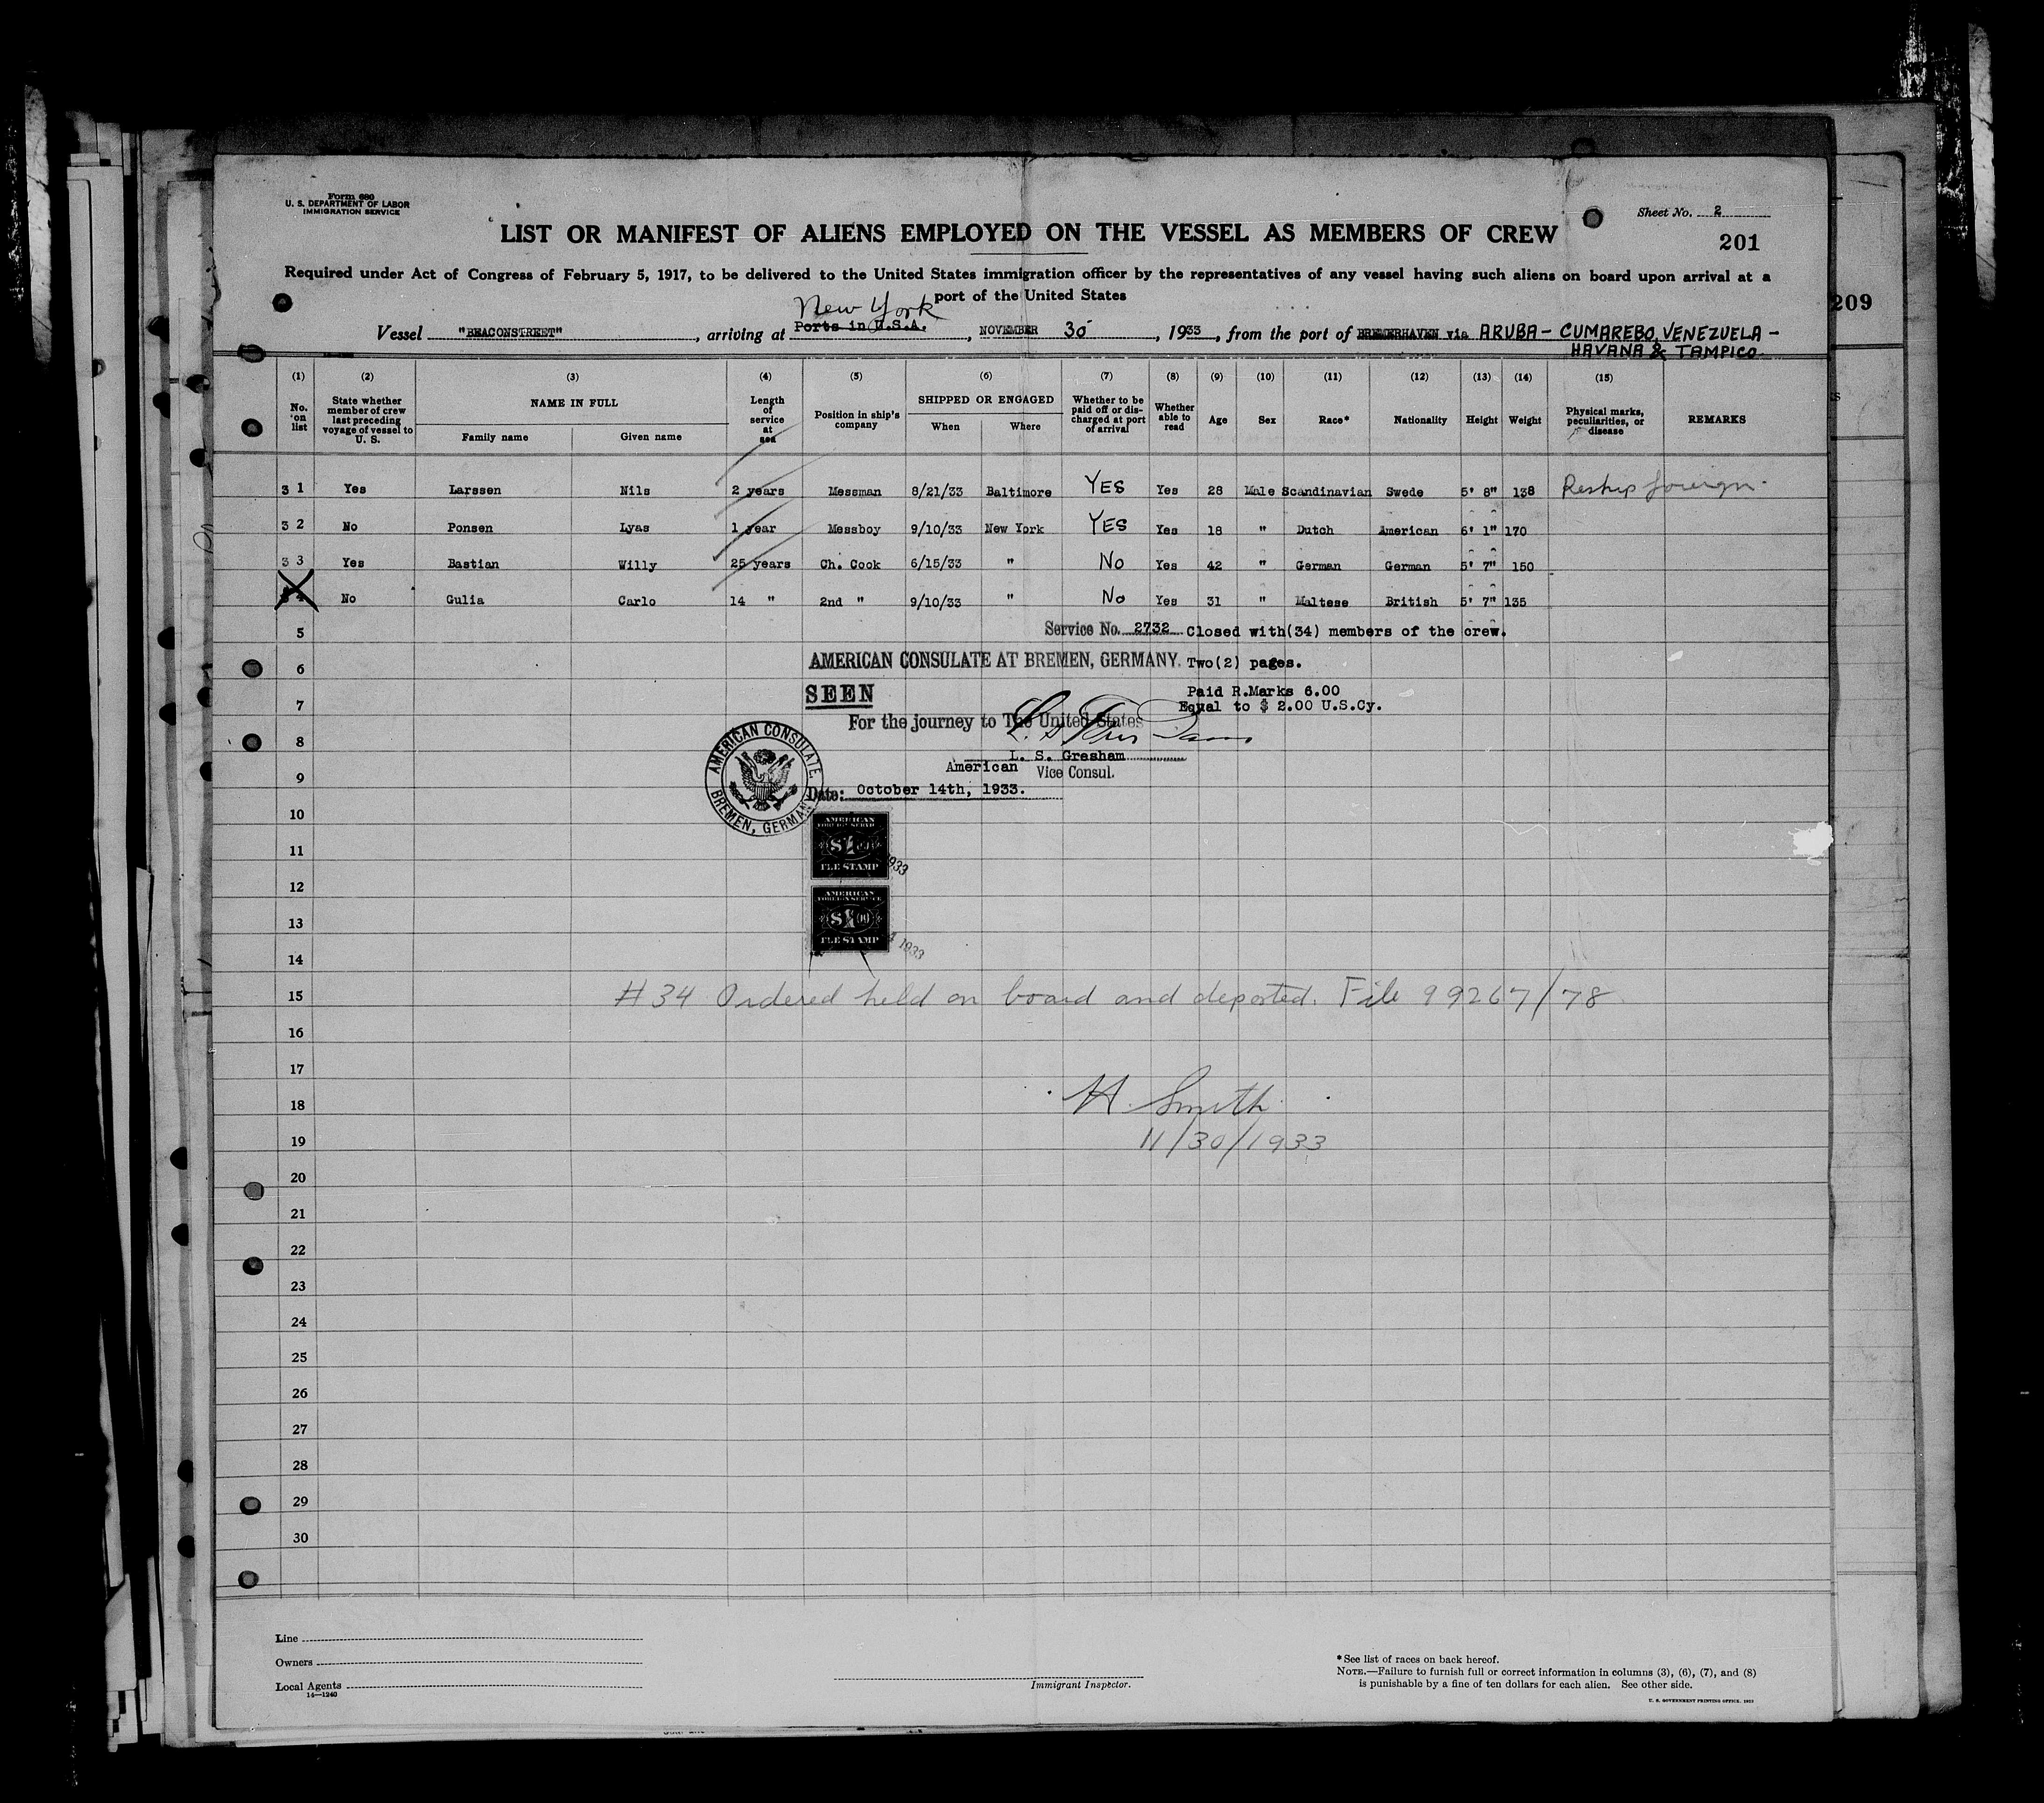 Form 680
U. S. DEPARTMENT OF LABOR
IMMIGRATION SERVICE
Sheet No. 2
LIST OR MANIFEST OF ALIENS EMPLOYED ON THE VESSEL AS MEMBERS OF CREW
201
Required under Act of Congress of February 5, 1917, to be delivered to the United States immigration officer by the representatives of any vessel having such aliens on board upon arrival at a
port of the United States
209
New York
Vessel "BEACONSTREET", arriving at Ports in U.S.A., NOVEMBER 30, 1933, from the port of BREMERHAVEN via ARUBA - CUMAREBO, VENEZUELA -
HAVANA & TAMPICO.
(1) (2) (3) (4) (5) (6) (7) (8) (9) (10) (11) (12) (13) (14) (15)
No. on list State whether member of crew last preceding voyage of vessel to U. S. NAME IN FULL Family name Given name Length of service at sea Position in ship's company SHIPPED OR ENGAGED When Where Whether to be paid off or discharged at port of arrival Whether able to read Age Sex Race* Nationality Height Weight Physical marks, peculiarities, or disease REMARKS
3 1 Yes Larssen Nils 2 years Messman 8/21/33 Baltimore YES Yes 28 Male Scandinavian Swede 5' 8" 138 Reship foreign.
3 2 No Ponsen Lyas 1 year Messboy 9/10/33 New York YES Yes 18 " Dutch American 6' 1" 170
3 3 Yes Bastian Willy 25 years Ch. Cook 6/15/33 " No Yes 42 " German German 5' 7" 150
3 4 No Gulia Carlo 14 " 2nd " 9/10/33 " No Yes 31 " Maltese British 5' 7" 135
5 Service No. 2732 Closed with(34) members of the crew.
6 AMERICAN CONSULATE AT BREMEN, GERMANY. Two(2) pages.
SEEN Paid R.Marks 6.00
7 Equal to $ 2.00 U.S.Cy.
For the journey to The United States
8
L. S. Gresham
American Vice Consul.
9
Date: October 14th, 1933.
AMERICAN CONSULATE, BREMEN, GERMANY
10
AMERICAN FOREIGN SERVICE
11
FEE STAMP
1933
12
AMERICAN FOREIGN SERVICE
13
$1.00
FEE STAMP
1933
14
15 #34 Ordered held on board and deported. File 99267/78
16
17
18 H. Smith
19 11/30/1933
20
21
22
23
24
25
26
27
28
29
30
Line
Owners
Local Agents
14—1240
Immigrant Inspector.
* See list of races on back hereof.
NOTE.—Failure to furnish full or correct information in columns (3), (6), (7), and (8)
is punishable by a fine of ten dollars for each alien. See other side.